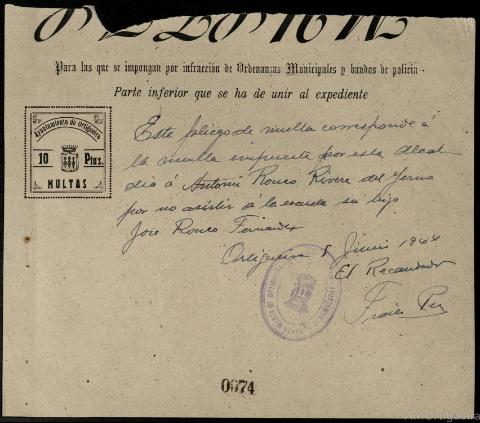 Para las que se impongan por infracción de Ordenanzas Municipales y bandos de policía
Parte inferior que se ha de unir al expediente
Ayuntamiento de Ortigueira
10 Ptas.
MULTAS
Este pliego de multa corresponde á
la multa impuesta por esta Alcal
dia á Antonio Rouco Rivera del Yermo
por no asistir á la escuela su hijo
José Rouco Fernandez
Ortigueira 5 Junio 1944
El Recaudador
0074